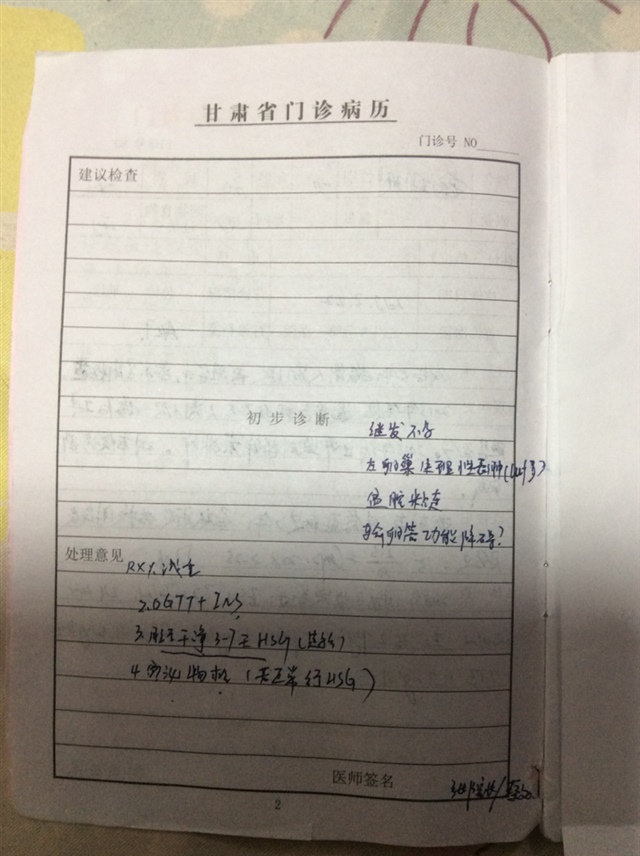 甘肃省门诊病历
门诊号 NO
建议检查
初步诊断
继发不孕
左卵巢生理性囊肿
宫腔粘连
输卵管功能障碍?
处理意见
RX1.
2.OGTT+INS
3.月经干净3-7天HSG
4.分泌物检(若正常行HSG)
医师签名
2